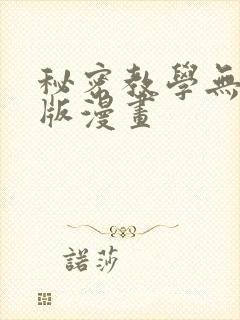 秘密教學無
版漫畫
諾莎